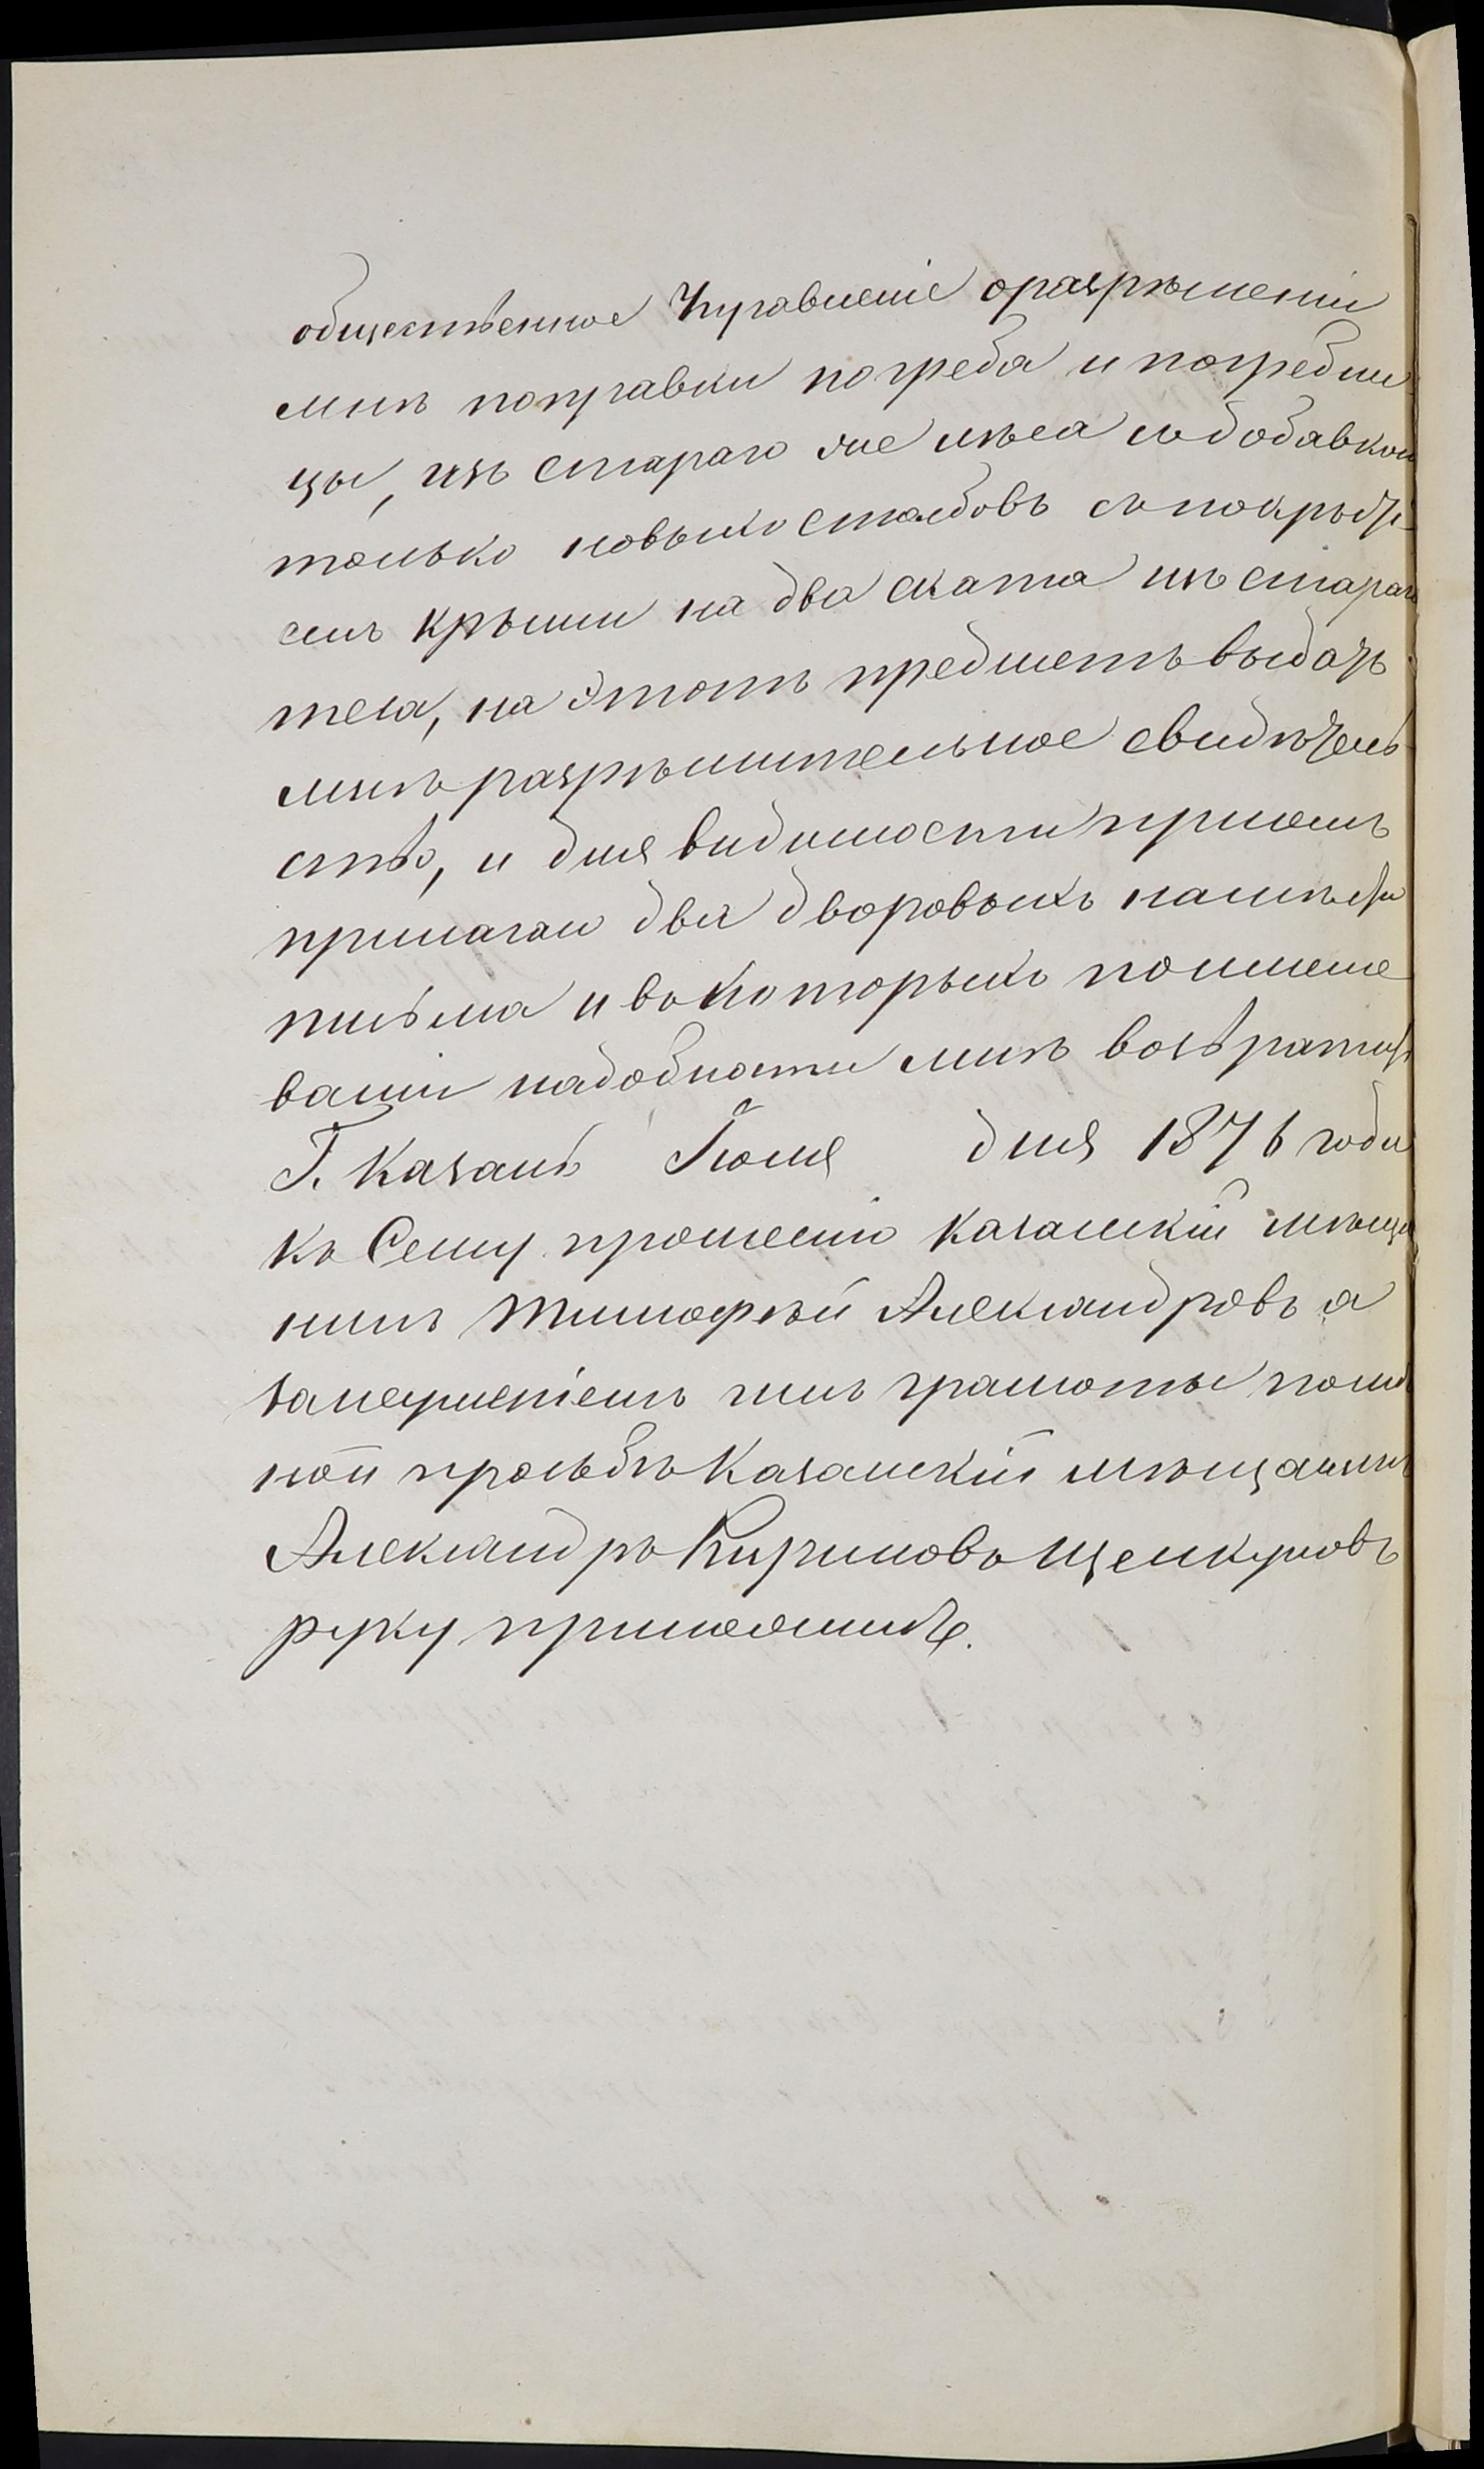 общественное Управленіе оразрѣшеніи
мнѣ поправки погреба и погребни
цы, изъ стараго же лѣса съдобавкой
только новыхъ столбовъ съпокрыті
емъ крыши на два ската изъ стараго
теса, на этотъ предметъ выдать
мнѣ разрѣшительное свидѣтель
ство, и для видимости присемъ
прилагаю два дворовыхъ
письма ивъ которыхъ поминѣ
ваніи надобности мнѣ возвратить
Г. Казань Іюля дня 1876 года
къ Сему прошенію казанскій мѣща
нинъ Тимофѣй Александровъ а
занеумѣніемъ имъ грамотыполич
ной прозьбѣ Казанскій мѣщанинъ
Александръ Кириловъ Щелкуновъ
руку приложилъ.